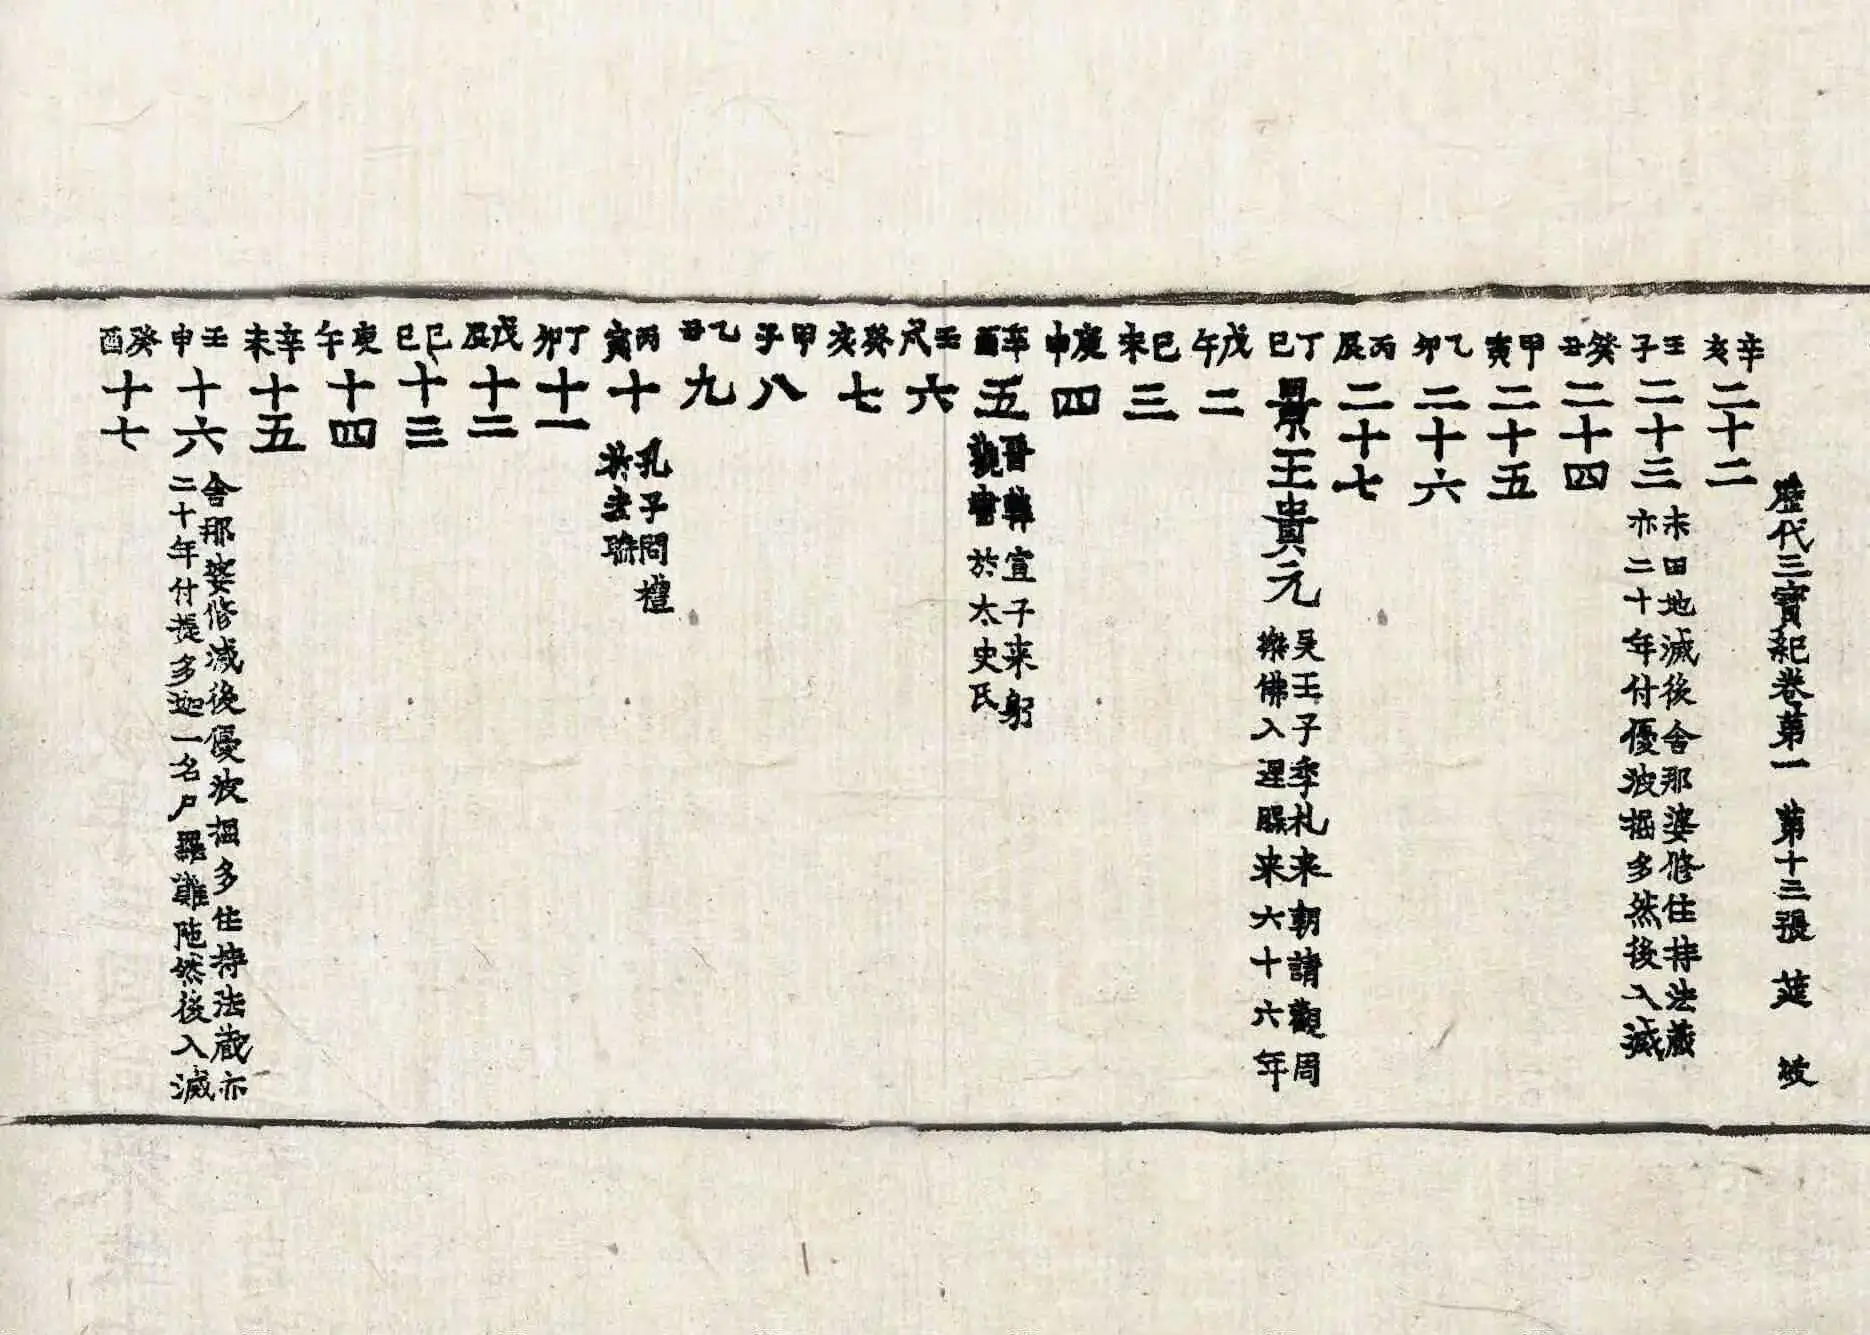 歷代三寶紀卷第一 第十三張 莚 𡛕
辛亥 二十二
壬子 二十三 末田地滅後舍那婆修住持法藏
亦二十年付優波掘多然後入滅
癸丑 二十四
甲寅 二十五
乙卯 二十六
丙辰 二十七
丁巳 景王貴元 吳王子季札来朝請觀周
樂佛入涅槃来六十六年
戊午 二
己未 三
庚申 四
辛酉 五 晉韓宣子来躬
觀書於太史氏
壬戌 六
癸亥 七
甲子 八
乙丑 九
丙寅 十 孔子問禮
於老聃
丁卯 十一
戊辰 十二
己巳 十三
庚午 十四
辛未 十五
壬申 十六 舍那婆修滅後優波掘多住持法藏亦
二十年付提多迦一名尸羅難陁然後入滅
癸酉 十七